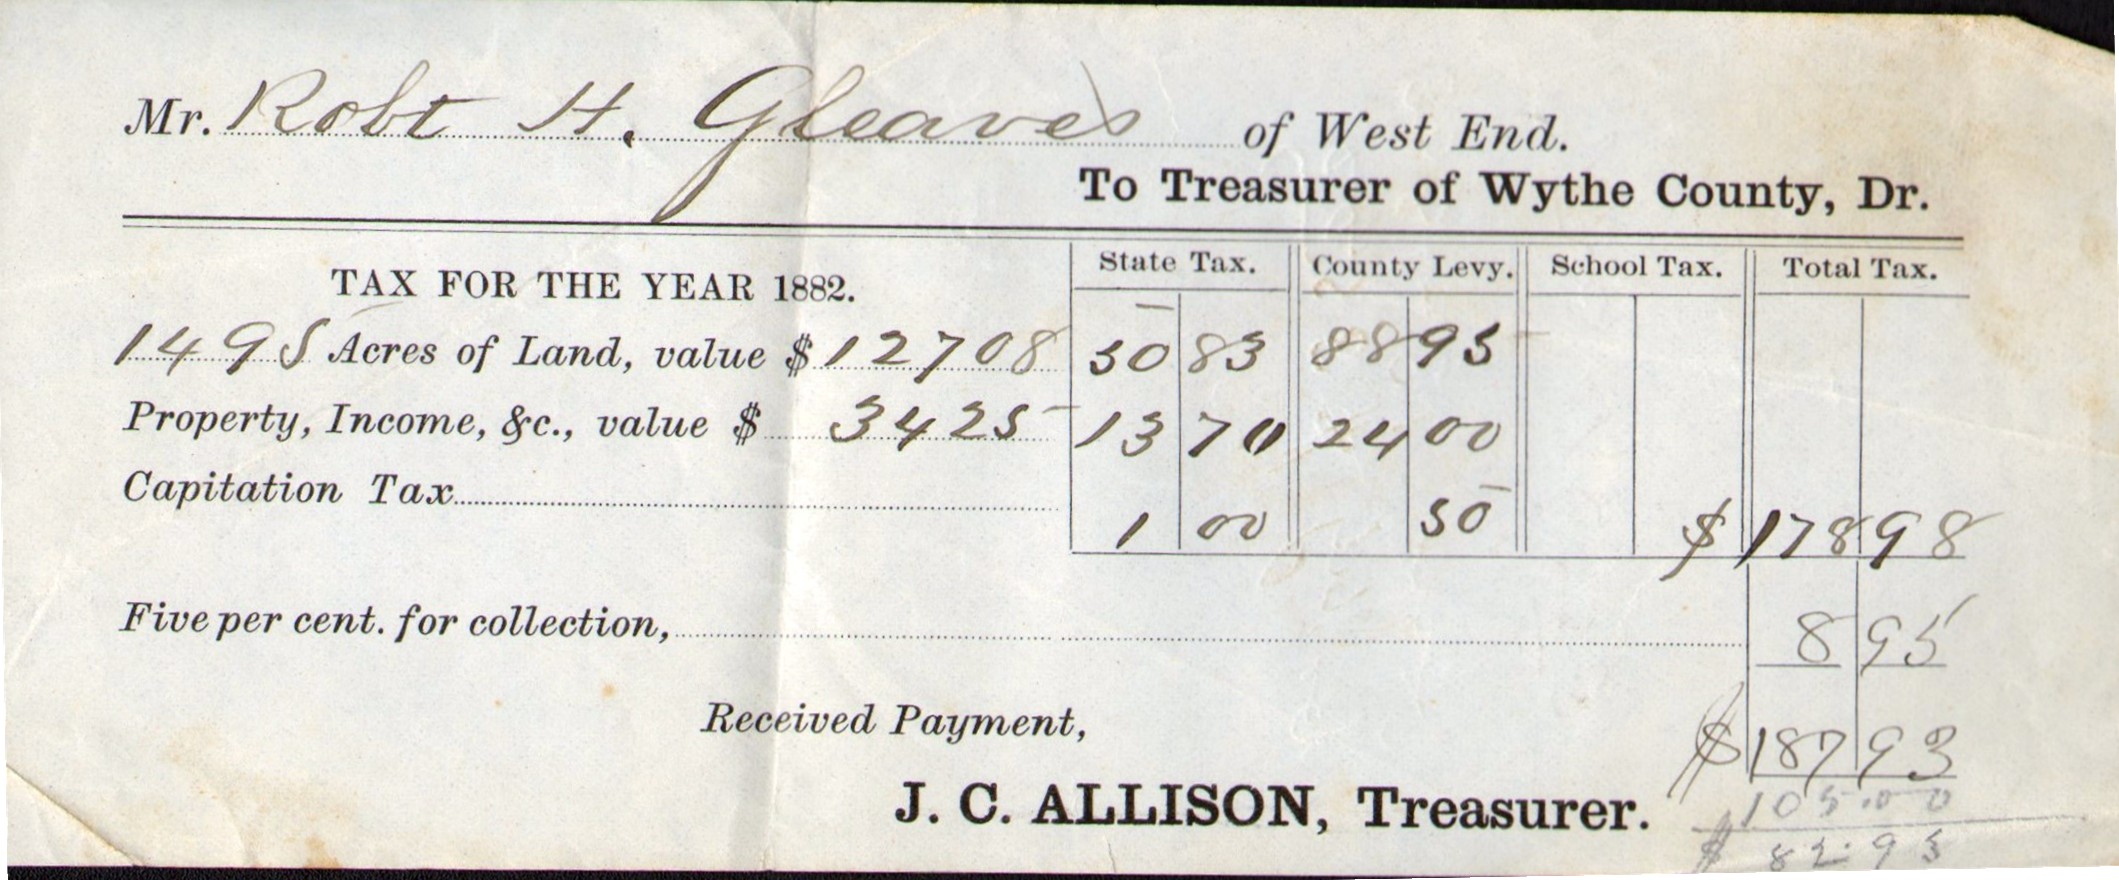 Mr. Robt H. Gleaves of West End.
To Treasurer of Wythe County, Dr.
TAX FOR THE YEAR 1882.
State Tax. County Levy. School Tax. Total Tax.
1495 Acres of Land, value $ 12708 50 83 88 95
Property, Income, &c., value $ 3425 13 70 24 00
Capitation Tax 1 00 50 $ 178 98
Five per cent. for collection, 8 95
Received Payment, $ 187 93
J. C. ALLISON, Treasurer.
105.00
$ 82.93